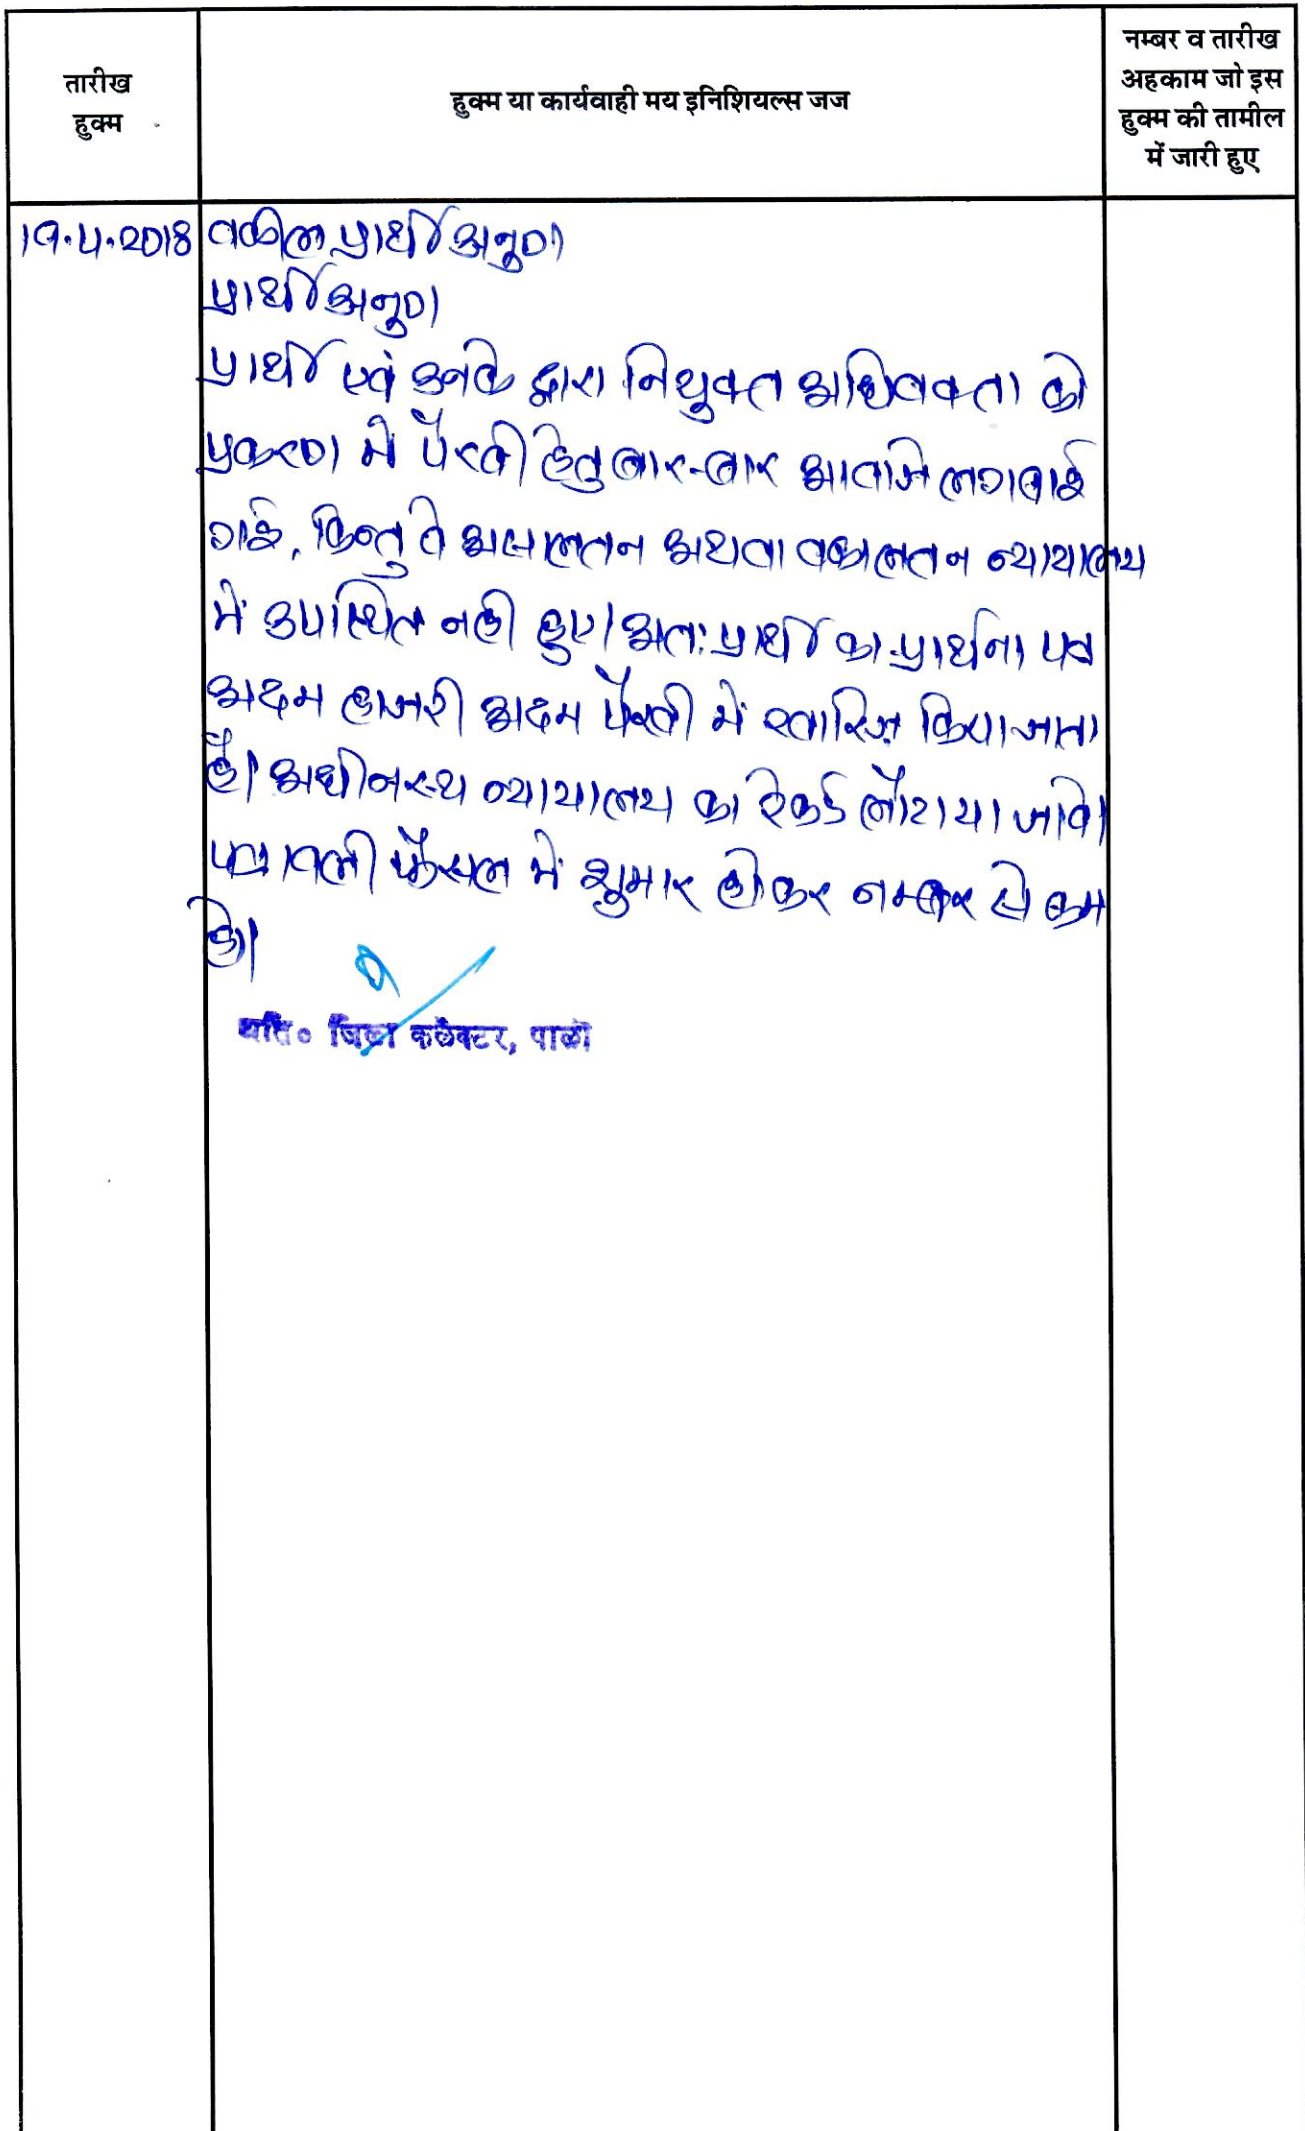 तारीख
हुक्म
हुक्म या कार्यवाही मय इनिशियल्स जज
नम्बर व तारीख
अहकाम जो इस
हुक्म की तामील
में जारी हुए
19.4.2018 वकील प्रार्थी अनु0
प्रार्थी अनु0
प्रार्थी एवं उनके द्वारा नियुक्त अधिवक्ता को
प्रकरण में पैरवी हेतु बार-बार आवाजे लगवाई
गई, किन्तु वे असालतन अथवा वकालतन न्यायालय
में उपस्थित नही हुए। अतः प्रार्थी का प्रार्थना पत्र
अदम हाजरी अदम पैरवी में खारिज़ किया जाता
है। अधीनस्थ न्यायालय का रेकर्ड लौटाया जावे।
पत्रावली फैसल में शुमार होकर नम्बर से कम
हो।
अति० जिला कलेक्टर, पाली